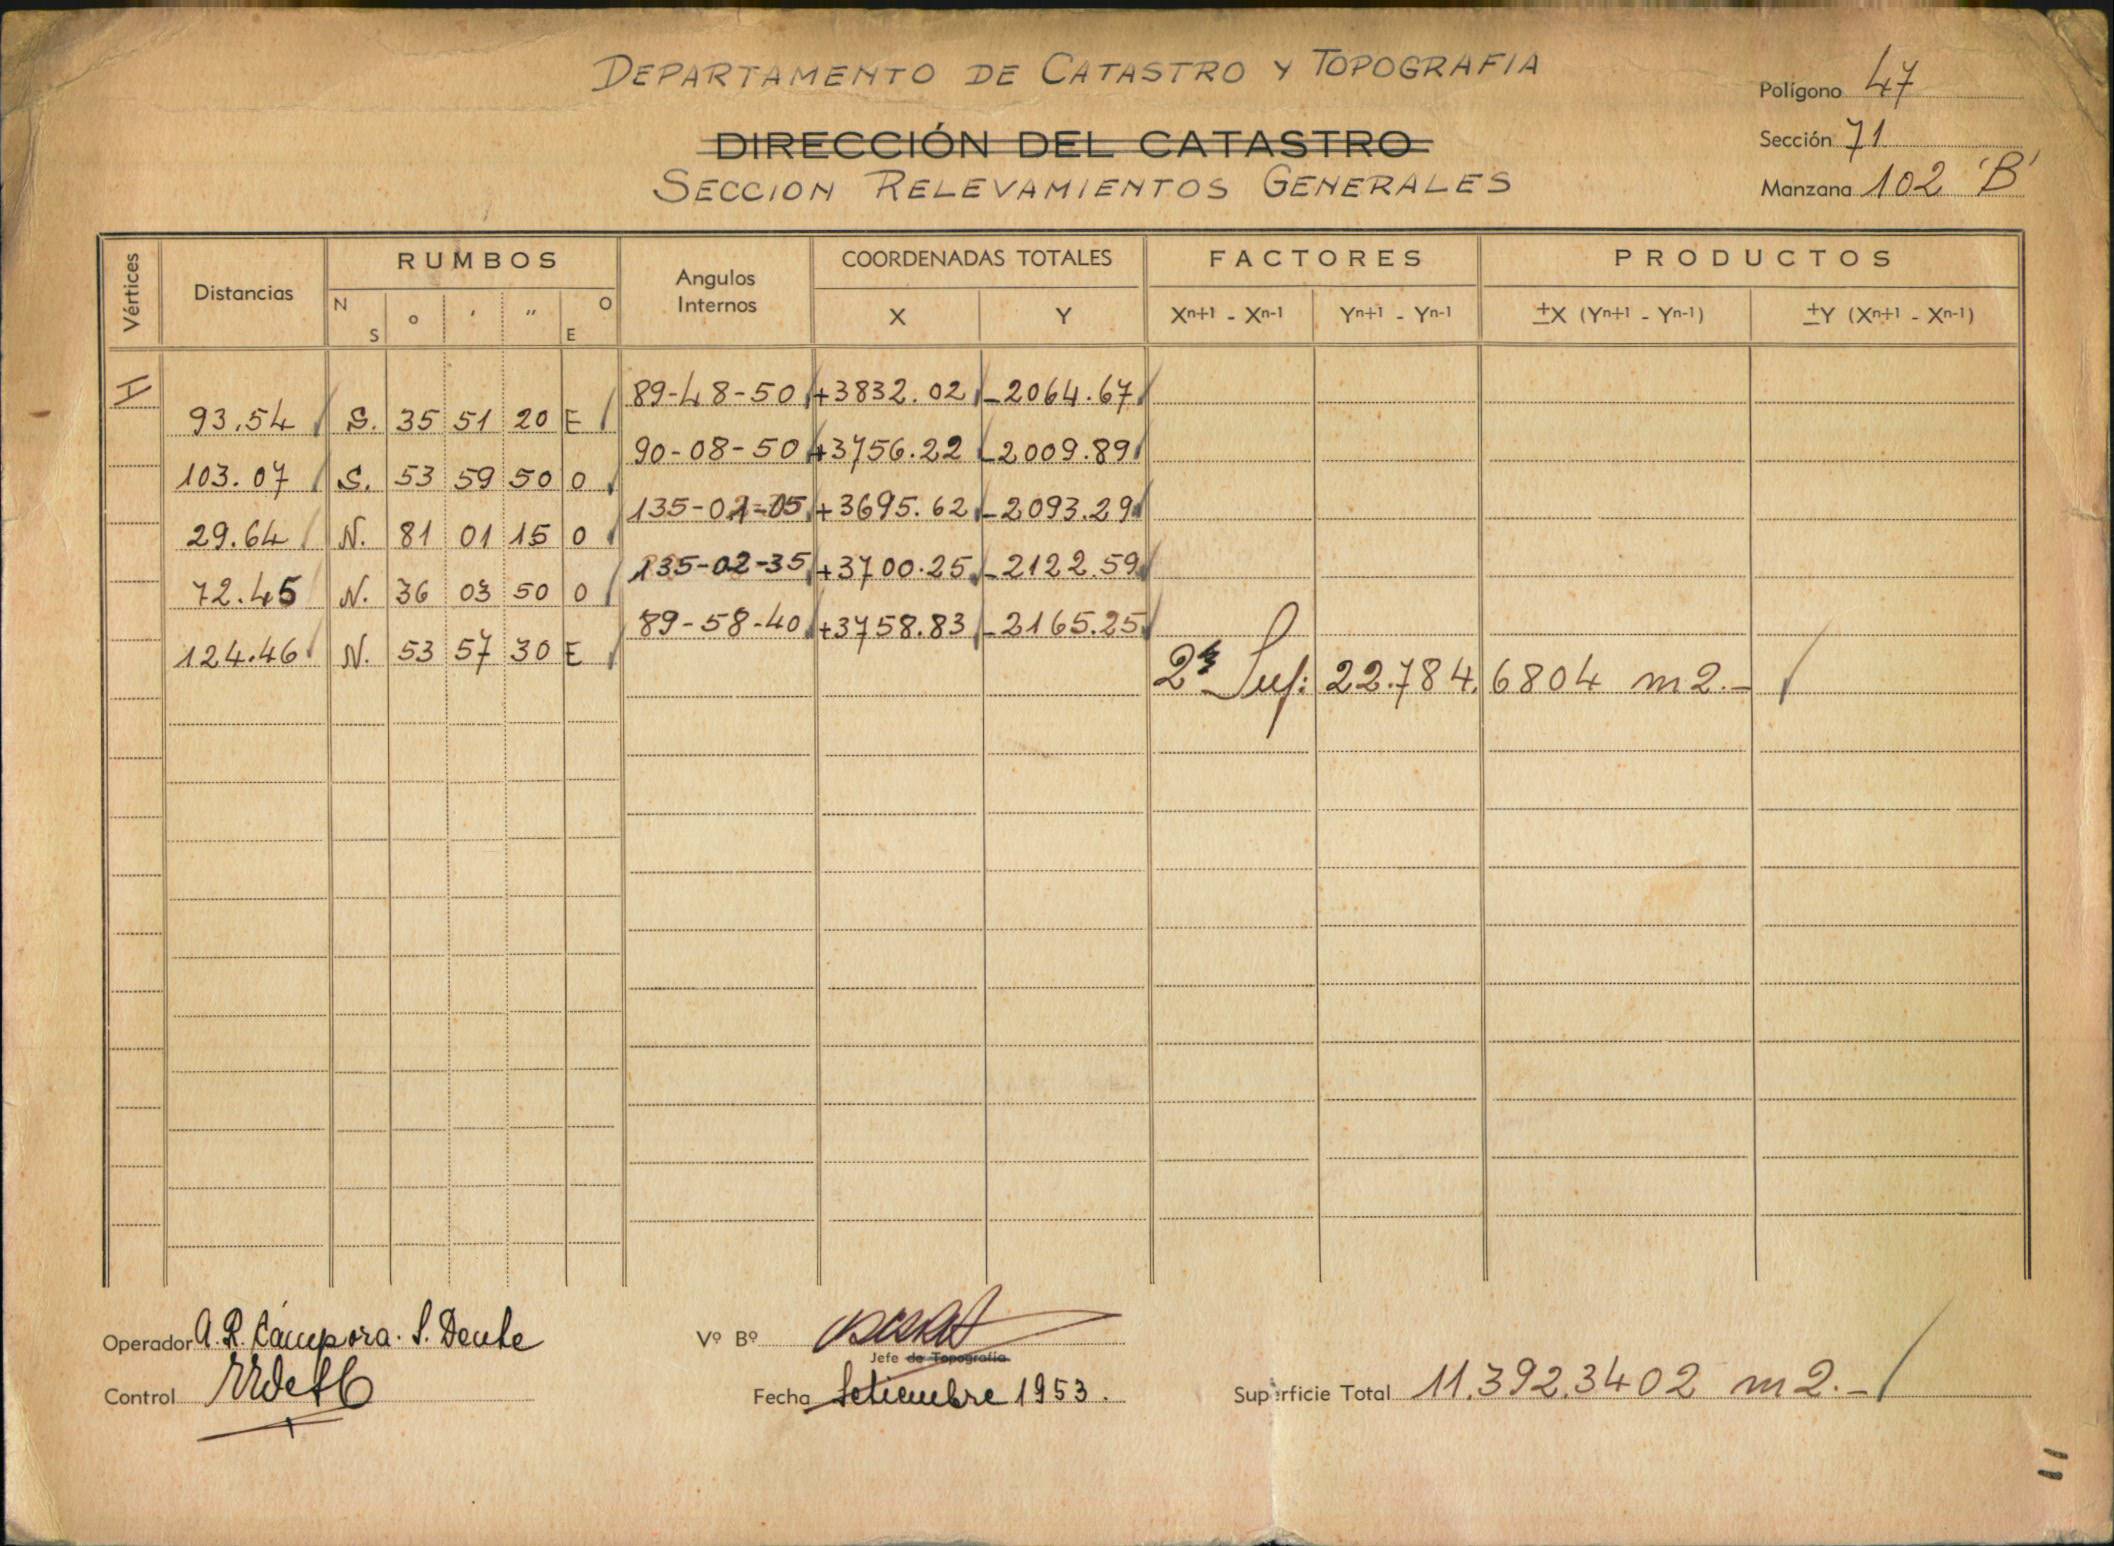 DEPARTAMENTO DE CATASTRO Y TOPOGRAFIA
Polígono 47
DIRECCIÓN DEL CATASTRO
Sección 71
SECCION RELEVAMIENTOS GENERALES
Manzana 102 'B'
Vértices Distancias RUMBOS Angulos Internos COORDENADAS TOTALES FACTORES PRODUCTOS
N S ° ' " O E X Y Xn+1 - Xn-1 Yn+1 - Yn-1 ±X (Yn+1 - Yn-1) ±Y (Xn+1 - Xn-1)
H 89-48-50 +3832.02 -2064.67
93.54 S. 35 51 20 E
90-08-50 +3756.22 -2009.89
103.07 S. 53 59 50 O
135-01-05 +3695.62 -2093.29
29.64 N. 81 01 15 O
135-02-35 +3700.25 -2122.59
72.45 N. 36 03 50 O
89-58-40 +3758.83 -2165.25
124.46 N. 53 57 30 E
Sup: 22.784,6804 m2.-
Operador A. R. Cámpora. S. Dente
Vº Bº
Jefe de Topografía
Control
Fecha Setiembre 1953.
Superficie Total 11.392.3402 m2.-